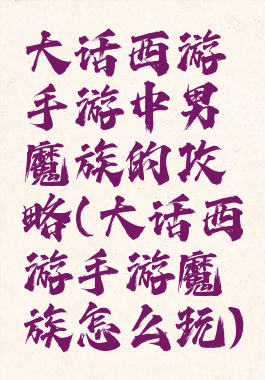 大话西游
手游中男
魔族的攻
略(大话西
游手游魔
族怎么玩)